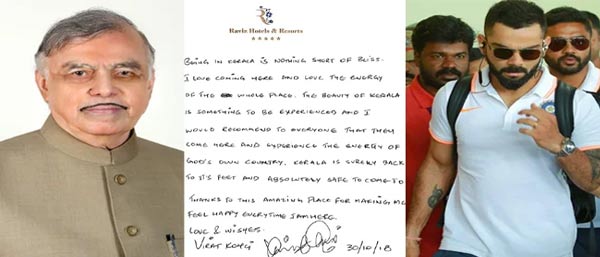 Raviz Hotels & Resorts
BEING IN KERALA IS NOTHING SHORT OF BLISS.
I LOVE COMING HERE AND LOVE THE ENERGY
OF THE WHOLE PLACE. THE BEAUTY OF KERALA
IS SOMETHING TO BE EXPERIENCED AND I
WOULD RECOMMEND TO EVERYONE THAT THEY
COME HERE AND EXPERIENCE THE ENERGY OF
GOD'S OWN COUNTRY. KERALA IS SURELY BACK
TO IT'S FEET AND ABSOLUTELY SAFE TO COME TO
THANKS TO THIS AMAZING PLACE FOR MAKING ME
FEEL HAPPY EVERYTIME I AM HERE.
LOVE & WISHES.
VIRAT KOHLI 30/10/18